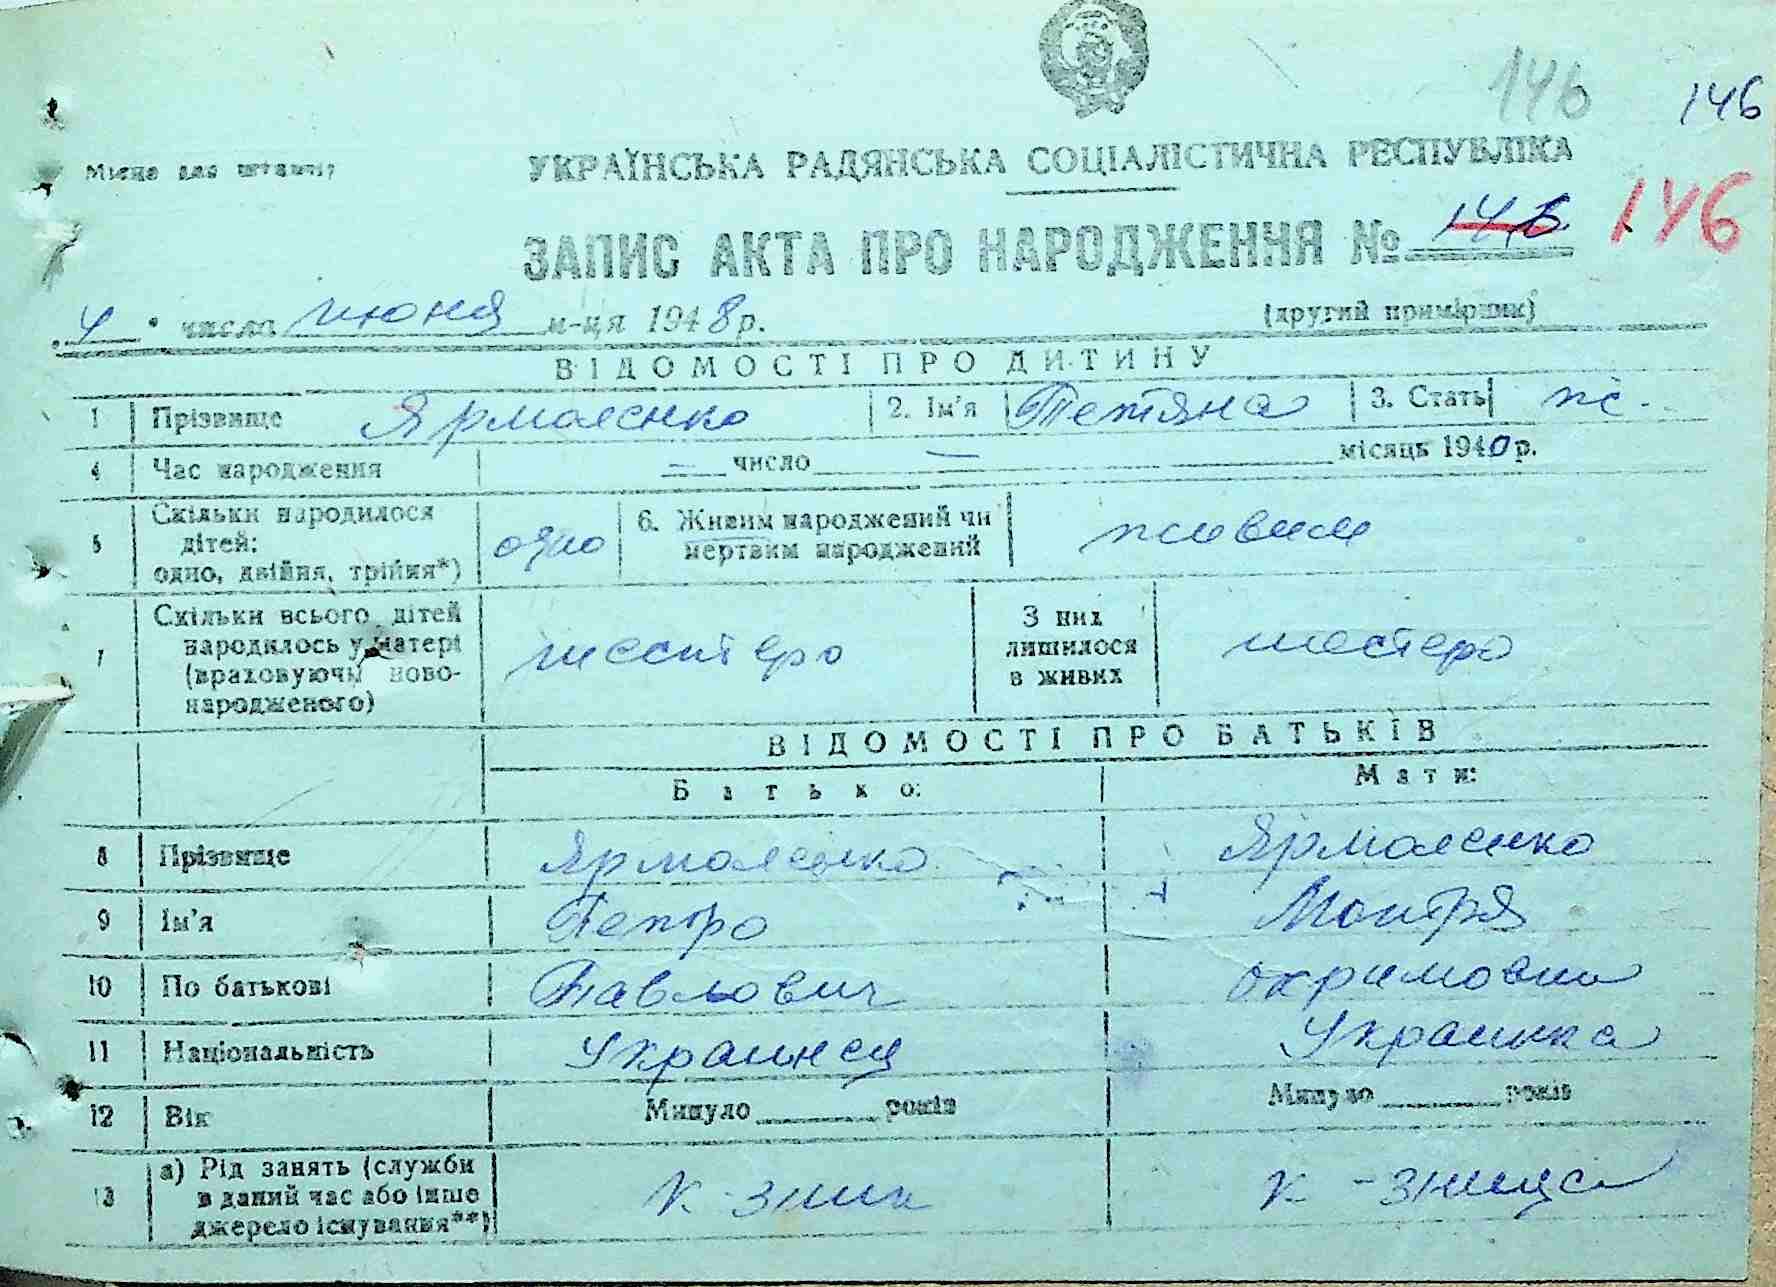 146 146
Місце для штампу
УКРАЇНСЬКА РАДЯНСЬКА СОЦІАЛІСТИЧНА РЕСПУБЛІКА
ЗАПИС АКТА ПРО НАРОДЖЕННЯ № 146 146
„4“ числа июня м-ця 1948 р. (другий примірник)
ВІДОМОСТІ ПРО ДИТИНУ
1 Прізвище Ярмоленко 2. Ім'я Тетяна 3. Стать ж.
4 Час народження — число — місяць 1940 р.
5 Скільки народилося
дітей:
одно, двійня, трійня*) одно 6. Живим народжений чи
мертвим народжений живим
7 Скільки всього дітей
народилось у матері
(враховуючи ново-
народженого) шестеро З них
лишилося
в живих шестеро
ВІДОМОСТІ ПРО БАТЬКІВ
Батько: Мати:
8 Прізвище Ярмоленко Ярмоленко
9 Ім'я Петро Мотря
10 По батькові Павлович Охримовна
11 Національність Украинец Украинка
12 Вік Минуло років Минуло років
13 а) Рід занять (служби
в даний час або інше
джерело існування**) к-зник к-зница